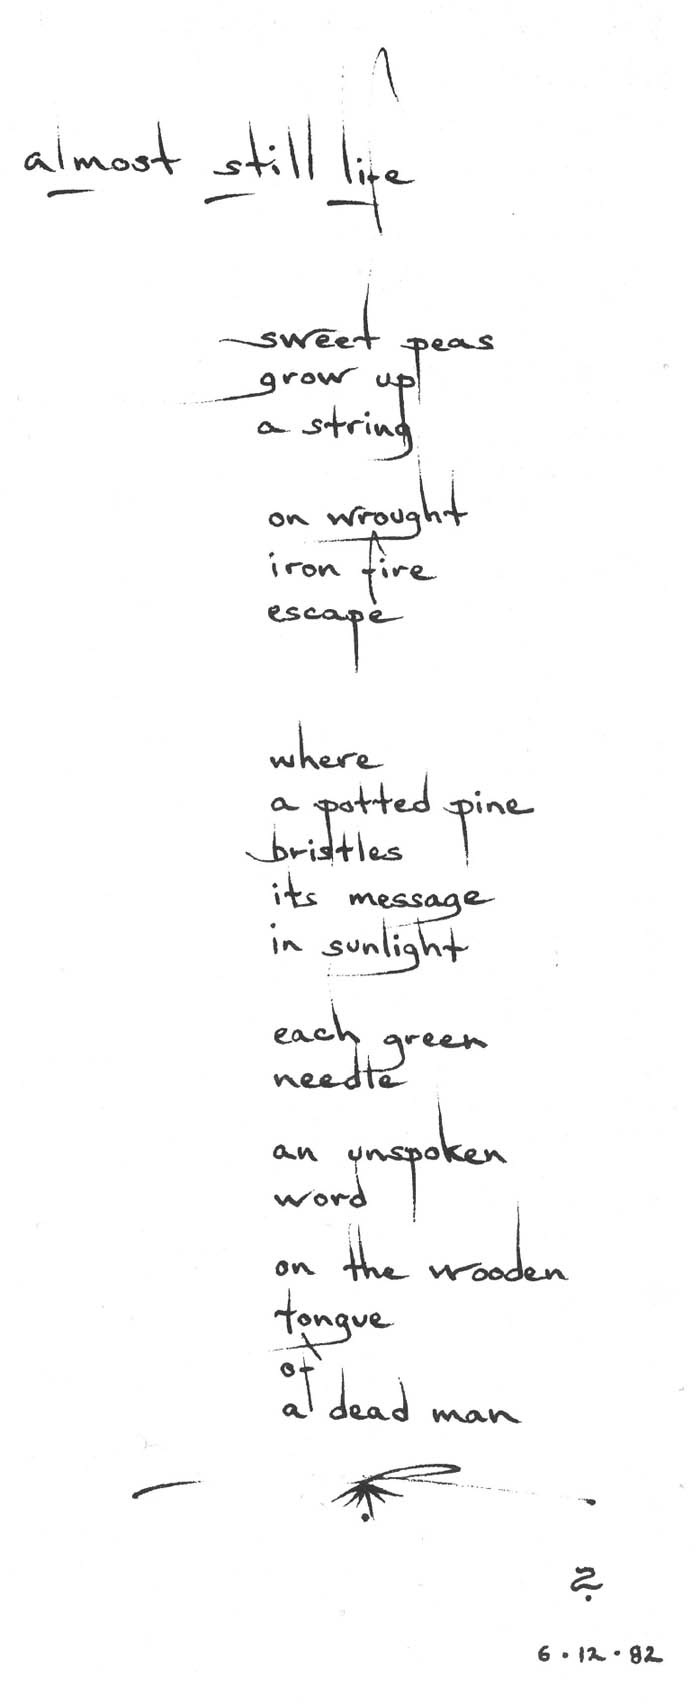 almost still life
sweet peas
grow up
a string
on wrought
iron fire
escape
where
a potted pine
bristles
its message
in sunlight
each green
needle
an unspoken
word
on the wooden
tongue
of
a dead man
6.12.82